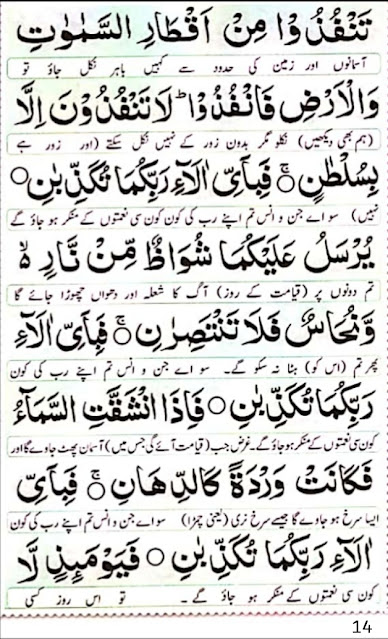 تَنْفُذُوْا مِنْ اَقْطَارِ السَّمٰوٰتِ
آسمانوں اور زمین کی حدود سے کہیں باہر نکل جاؤ تو
وَالْاَرْضِ فَانْفُذُوْا ؕ لَا تَنْفُذُوْنَ اِلَّا
(ہم بھی دیکھیں) نکلو مگر بدون زور کے نہیں نکل سکتے (اور زور ہے
بِسُلْطٰنٍ ۚ فَبِاَیِّ اٰلَآءِ رَبِّكُمَا تُكَذِّبٰنِ
نہیں) سو اے جن و انس تم اپنے رب کی کون کون سی نعمتوں کے منکر ہو جاؤ گے
یُرْسَلُ عَلَیْكُمَا شُوَاظٌ مِّنْ نَّارٍ ۙ
تم دونوں پر (قیامت کے روز) آگ کا شعلہ اور دھواں چھوڑا جائے گا
وَّنُحَاسٌ فَلَا تَنْتَصِرٰنِ ۚ فَبِاَیِّ اٰلَآءِ
پھر تم (اس کو) ہٹا نہ سکو گے۔ سو اے جن و انس تم اپنے رب کی کون
رَبِّكُمَا تُكَذِّبٰنِ فَاِذَا انْشَقَّتِ السَّمَآءُ
کون سی نعمتوں کے منکر ہو جاؤ گے۔ غرض جب (قیامت آئے گی جس میں) آسمان پھٹ جاوے گا اور
فَكَانَتْ وَرْدَةً كَالدِّهَانِ ۚ فَبِاَیِّ
ایسا سرخ ہو جاوے گا جیسے سرخ نری (یعنی چمڑا) سو اے جن و انس تم اپنے رب کی کون
اٰلَآءِ رَبِّكُمَا تُكَذِّبٰنِ فَیَوْمَىِٕذٍ لَّا
کون سی نعمتوں کے منکر ہو جاؤ گے۔ تو اس روز کسی
14